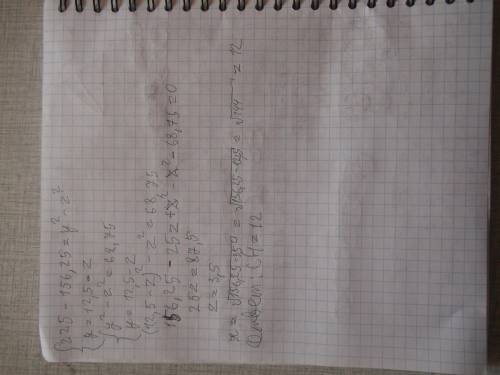 {225 - 156,25 = y² - z²
{y = 12,5 - z
{y² - z² = 68,75
{y = 12,5 - z
(12,5 - z)² - z² = 68,75
156,25 - 25z + x² - x² - 68,75 = 0
25z = 87,5
z = 3,5
= √144 = 12
Ответ: CH = 12